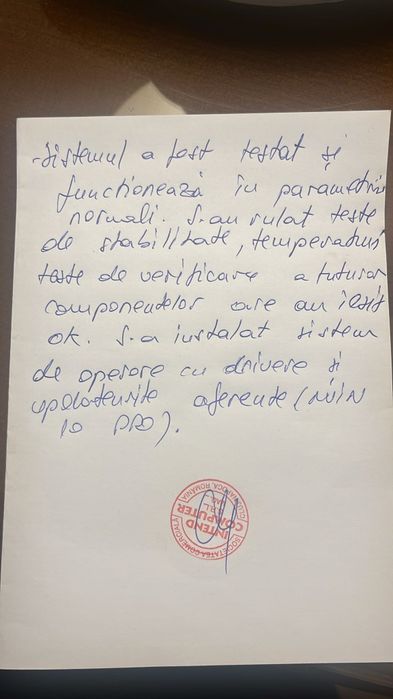 -Sistemul a fost testat și
funcționează în parametrii
normali. S-au rulat teste
de stabilitate, temperaturi
teste de verificare a tuturor
componentelor care au ieșit
ok. S-a instalat sistem
de operare cu drivere și
updateurile aferente (WIN
10 PRO).
SOCIETATEA COMERCIALĂ
INTEND
COMPUTER
S.R.L.
CLUJ-NAPOCA, ROMÂNIA